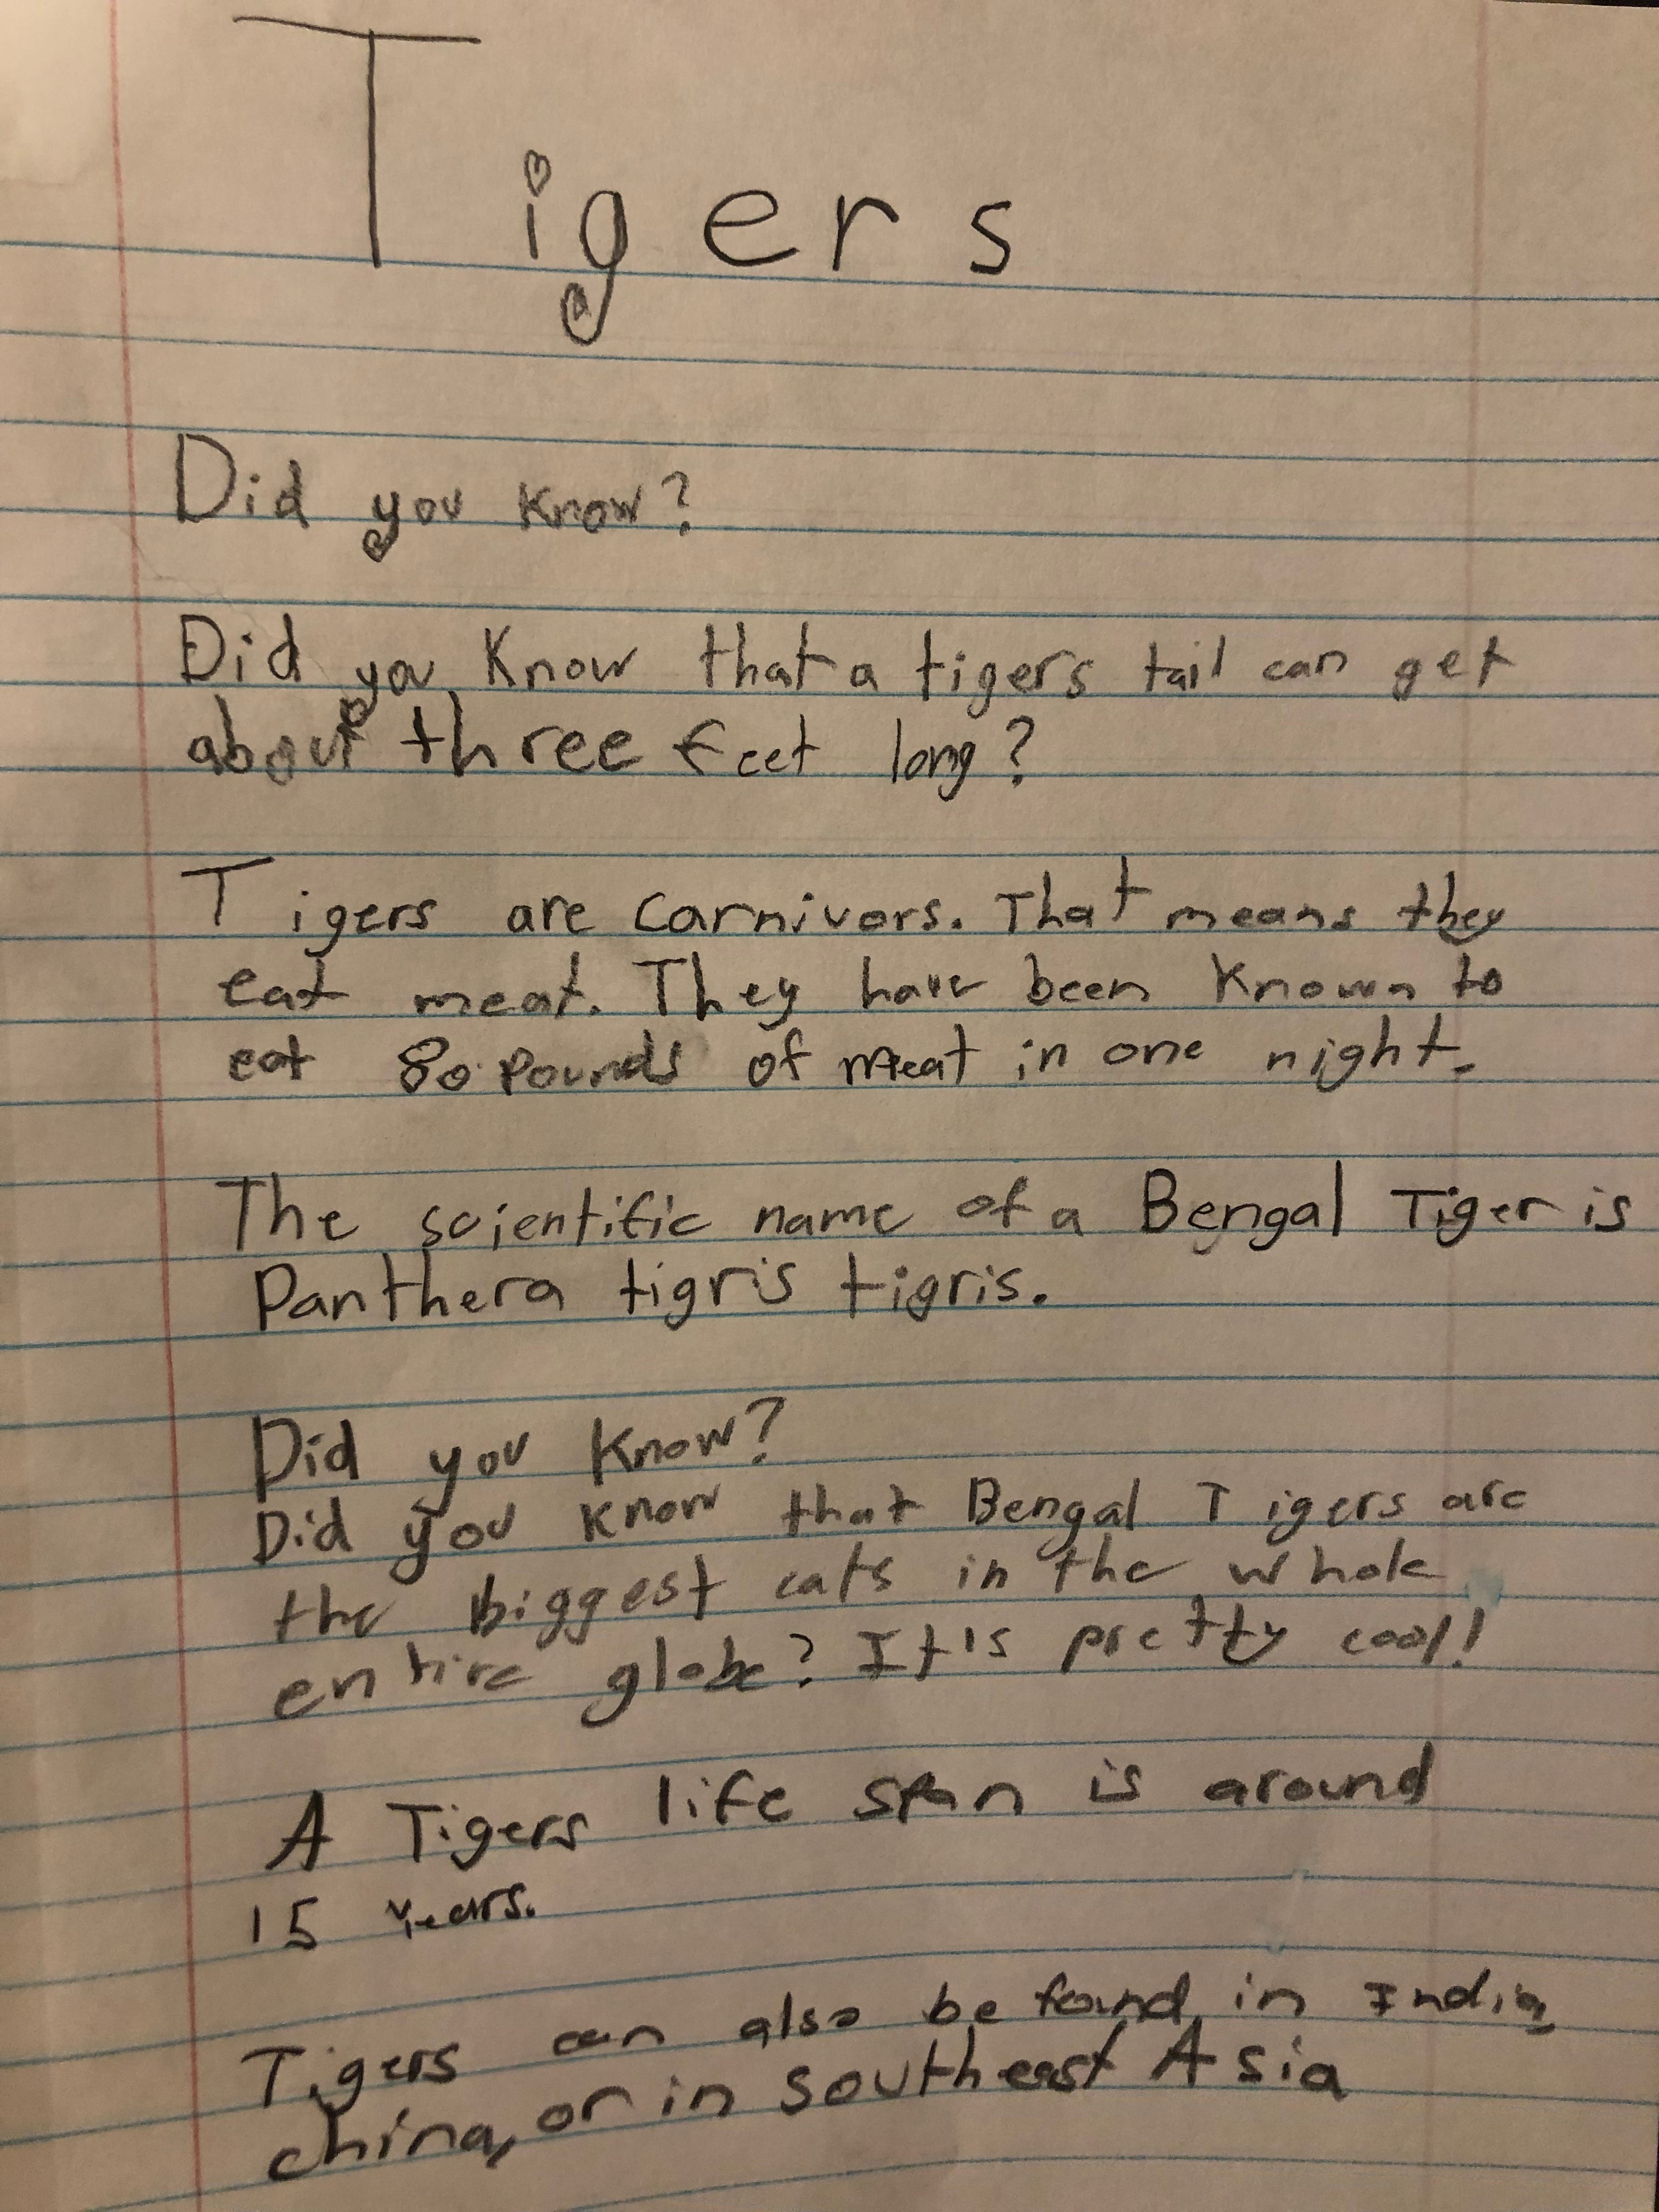 Tigers
Did you know?
Did you know that a tigers tail can get
about three feet long?
Tigers are carnivors. That means they
eat meat. They have been known to
eat 80 pounds of meat in one night.
The scientific name of a Bengal Tiger is
Panthera tigris tigris.
Did you know?
Did you know that Bengal Tigers are
the biggest cats in the whole
entire globe? It's pretty cool!
A Tigers life span is around
15 years.
Tigers can also be found in India,
china, or in southeast Asia